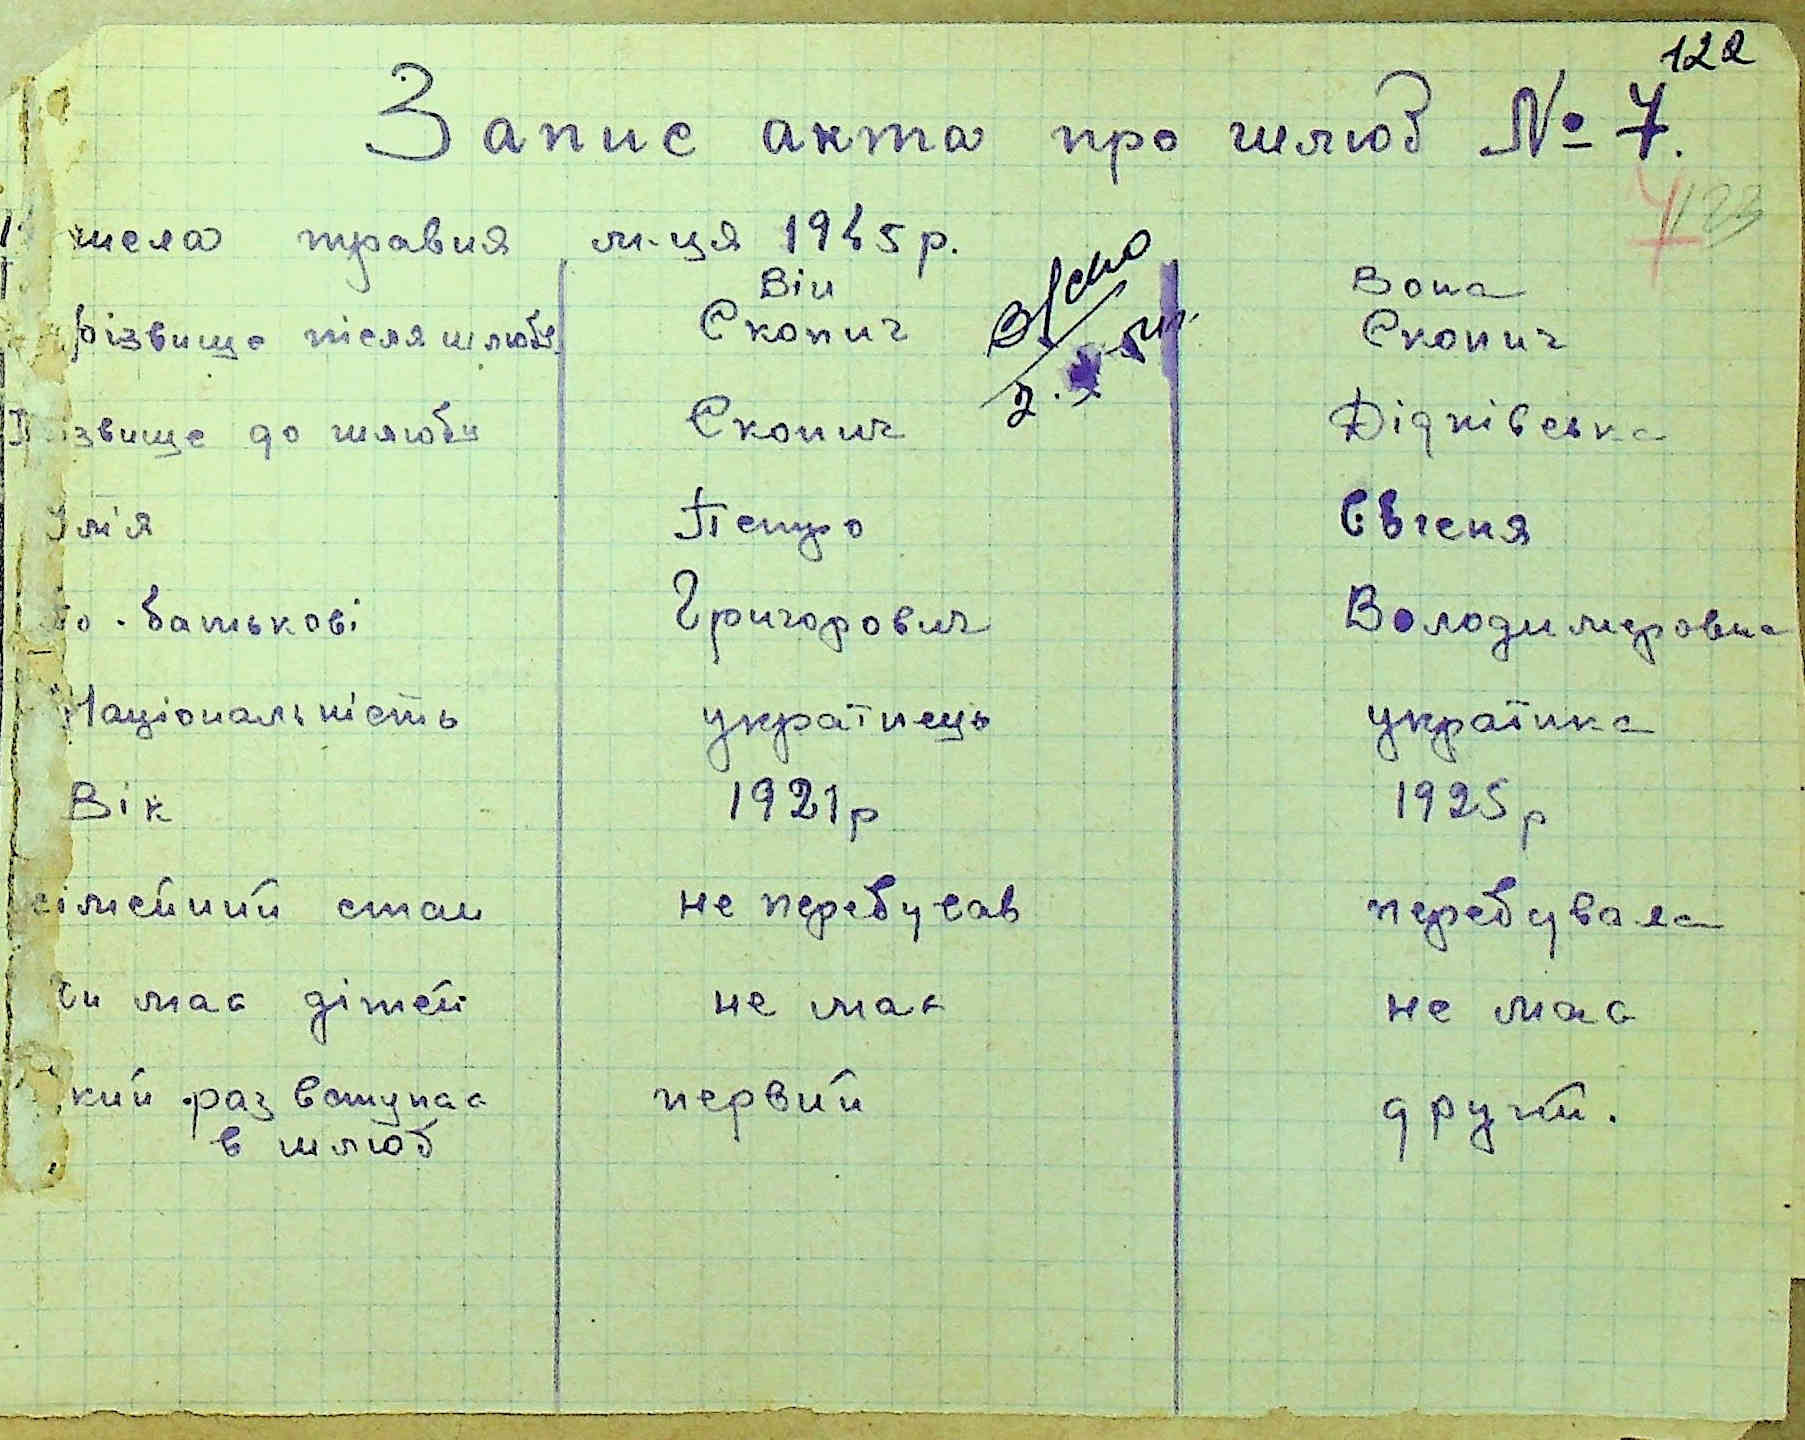 122
Запис акта про шлюб № 7.
7 123
числа травня м-ця 1945 р.
Він Вона
Прізвище після шлюбу Скопич Скопич
Взято
2.X.
Прізвище до шлюбу Скопич Дідківська
Імʼя Петро Євгеня
По-батькові Григорович Володимеровна
Національність українець українка
Вік 1921р 1925р
Сімейний стан не перебував перебувала
Чи має дітей не має не має
кий раз вступає первий другий.
в шлюб